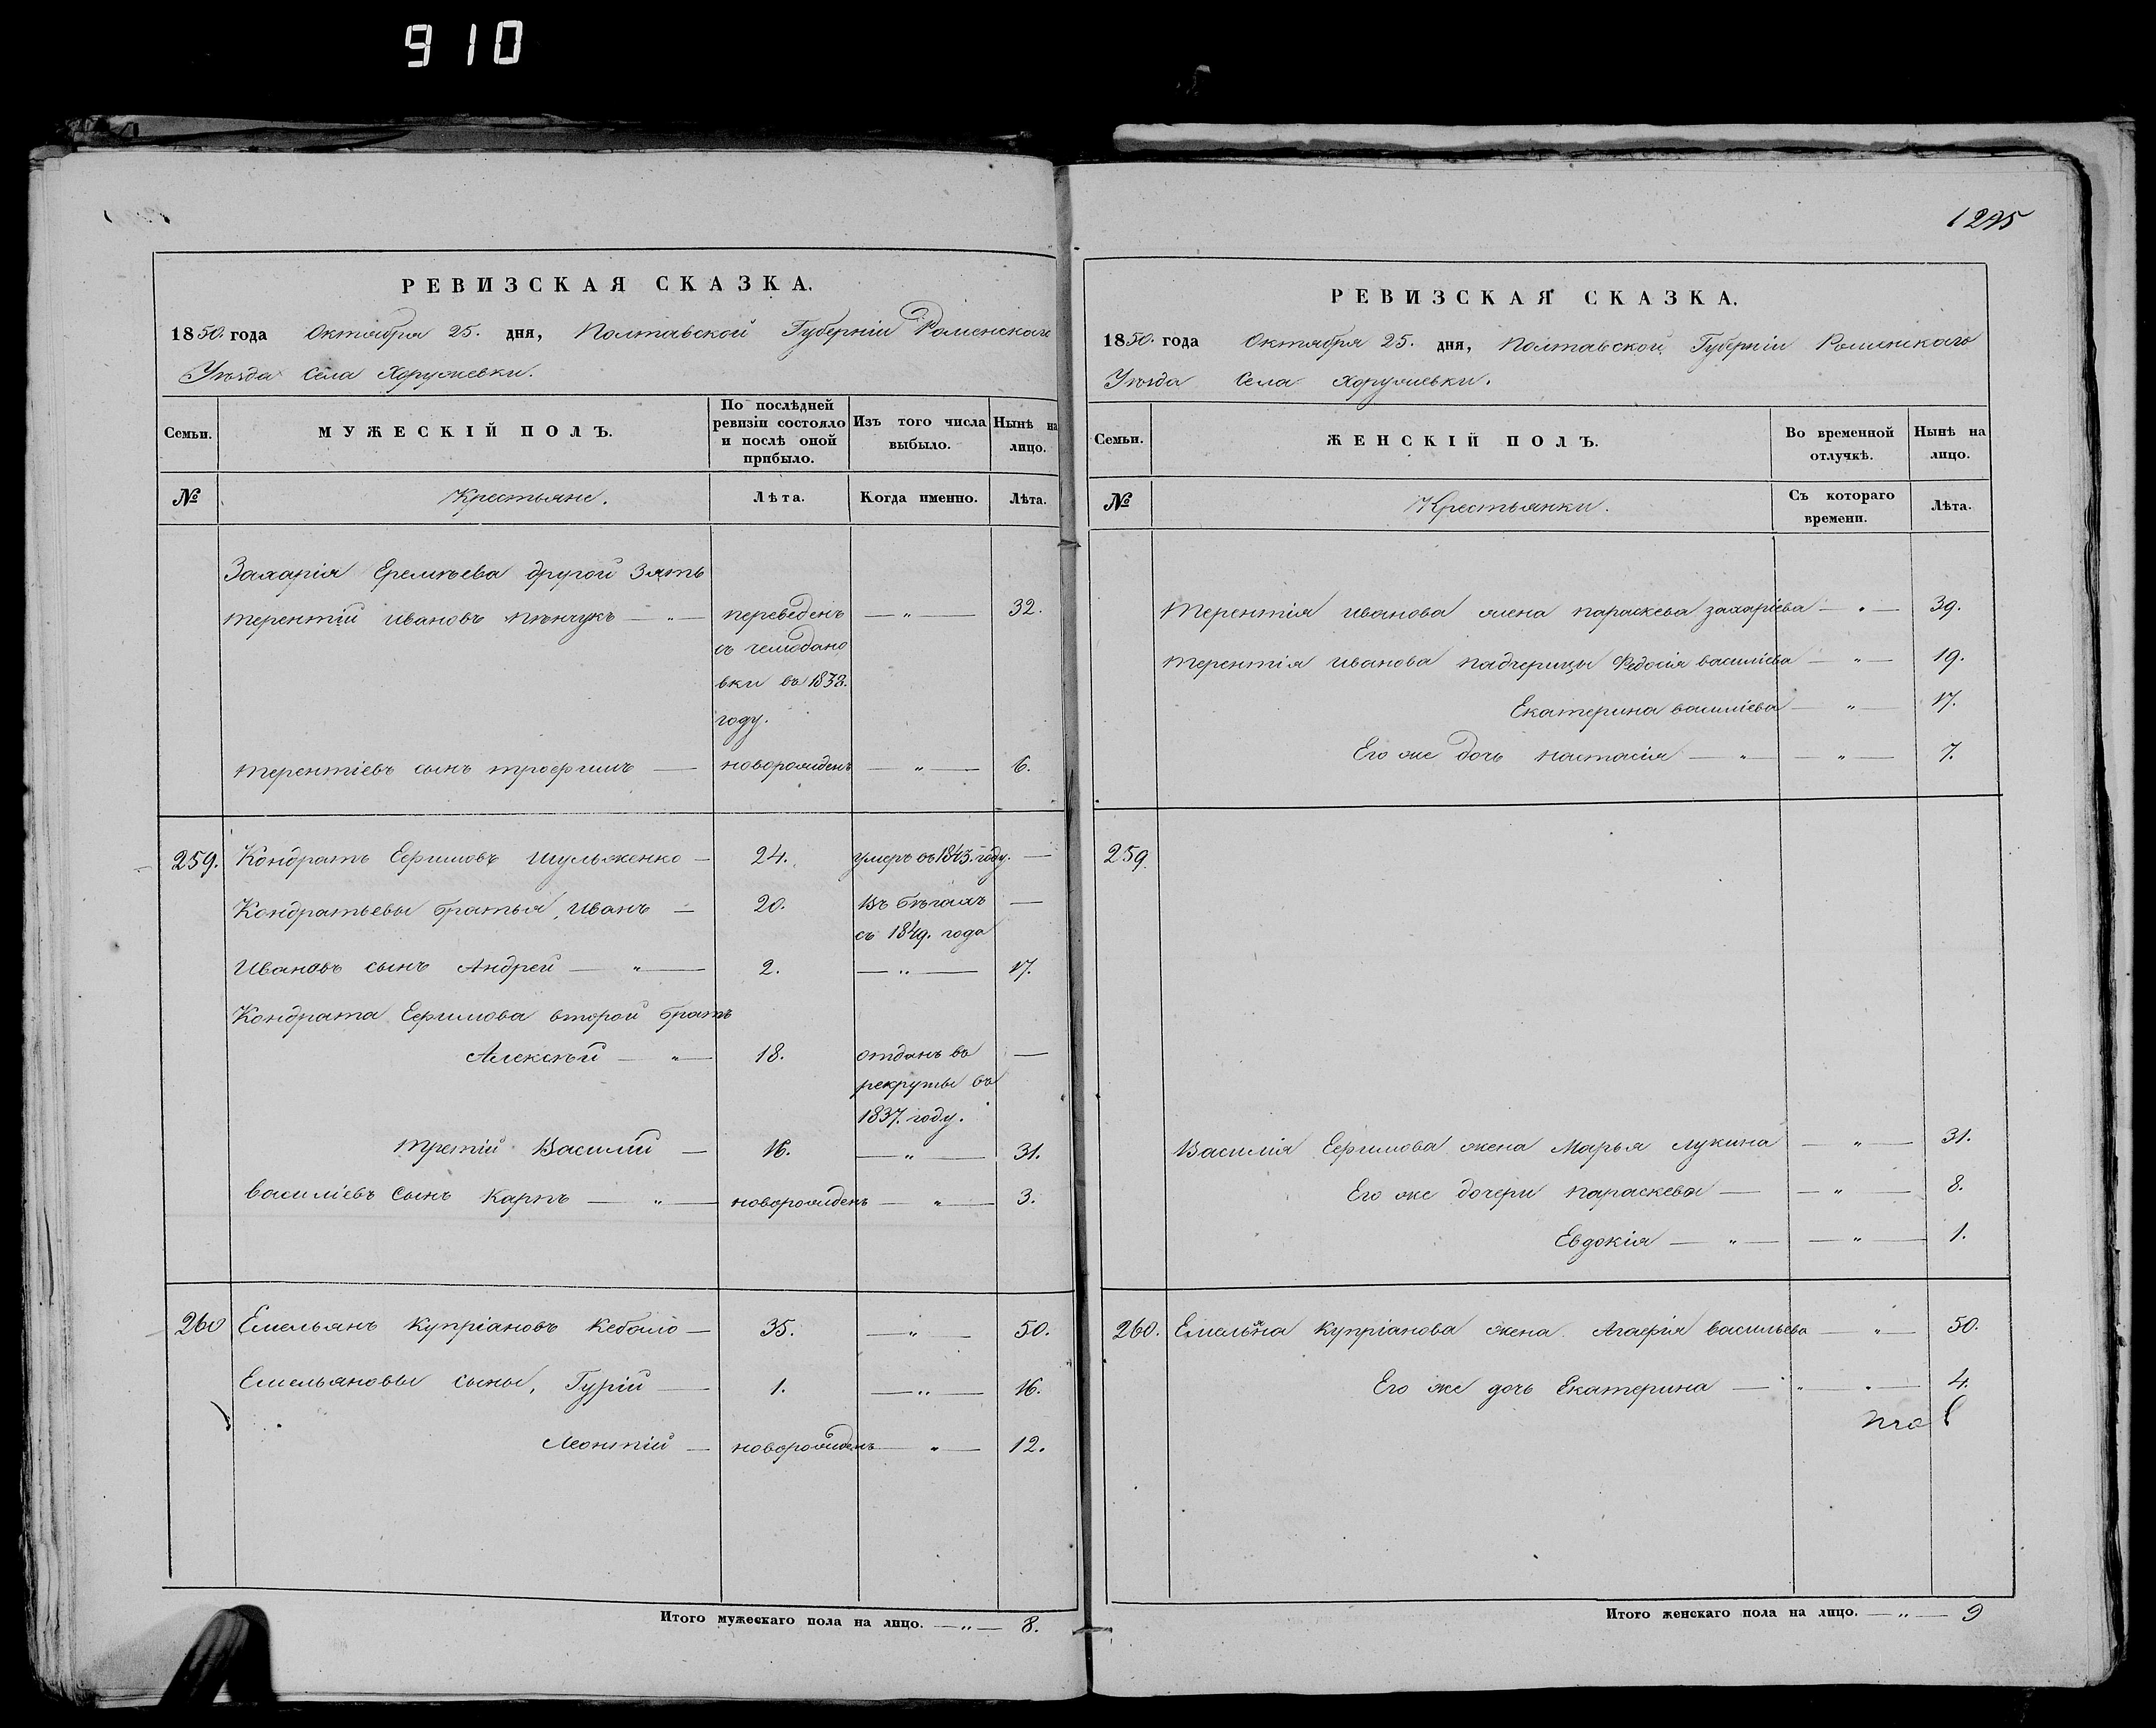 910
РЕВИЗСКАЯ СКАЗКА.
1850. года Октября 25. дня, Полтавской Губерніи Роменскаго
Уѣзда Села Хоружевки.
Семьи.
МУЖЕСКІЙ ПОЛЪ.
По послѣдней ревизіи состояло и послѣ оной прибыло.
Изъ того числа выбыло.
Нынѣ на лицо.
№ Крестьяне. Лѣта. Когда именно. Лѣта.
Захарія Еремѣева другой Зять
терентій ивановъ — " — переведенъ — " — 32.
съ чемодано
вки въ 1838.
году.
терентіевъ сынъ трофимъ — новорожденъ — " — 6.
259. Кондратъ Ефимовъ шульженко — 24. умеръ въ 1843. году. —
Кондратьевы братья, иванъ — 20. въ бѣгахъ —
съ 1849. года
Ивановъ сынъ Андрей — " — 2. — " — 17.
Кондрата Ефимова второй братъ
Алексѣй — " — 18. отданъ въ —
рекруты въ
1837. году.
третій Василій — 16. — " — 31.
василіевъ сынъ карпъ — " — новорожденъ — " — 3.
260 Емельянъ купріановъ кебало — 35. — " — 50.
Емельяновы сыны, Гурій — 1. — " — 16.
Леонтій — новорожденъ — " — 12.
Итого мужескаго пола на лицо. — " — 8.
РЕВИЗСКАЯ СКАЗКА.
1850. года Октября 25. дня, Полтавской Губерніи Роменскаго
Уѣзда Села Хоружевки.
Семьи.
ЖЕНСКІЙ ПОЛЪ.
Во временной отлучкѣ.
Нынѣ на лицо.
№ Крестьянки. Съ котораго времени. Лѣта.
терентія иванова жена параскева захаріева — " — 39.
терентія иванова падчерицы Федосія василіева — " — 19.
Екатерина василіева — " — 17.
Его же дочь настасія — " — — " — 7.
259.
Василія Ефимова жена Марья лукина — " — 31.
Его же дочери параскева — — " — 8.
Евдокія — " — — " — 1.
260. Емельяна купріанова жена Агафія васильева — " — 50.
Его же дочь Екатерина — " — " — 4.
Итого женскаго пола на лицо. — " — 9